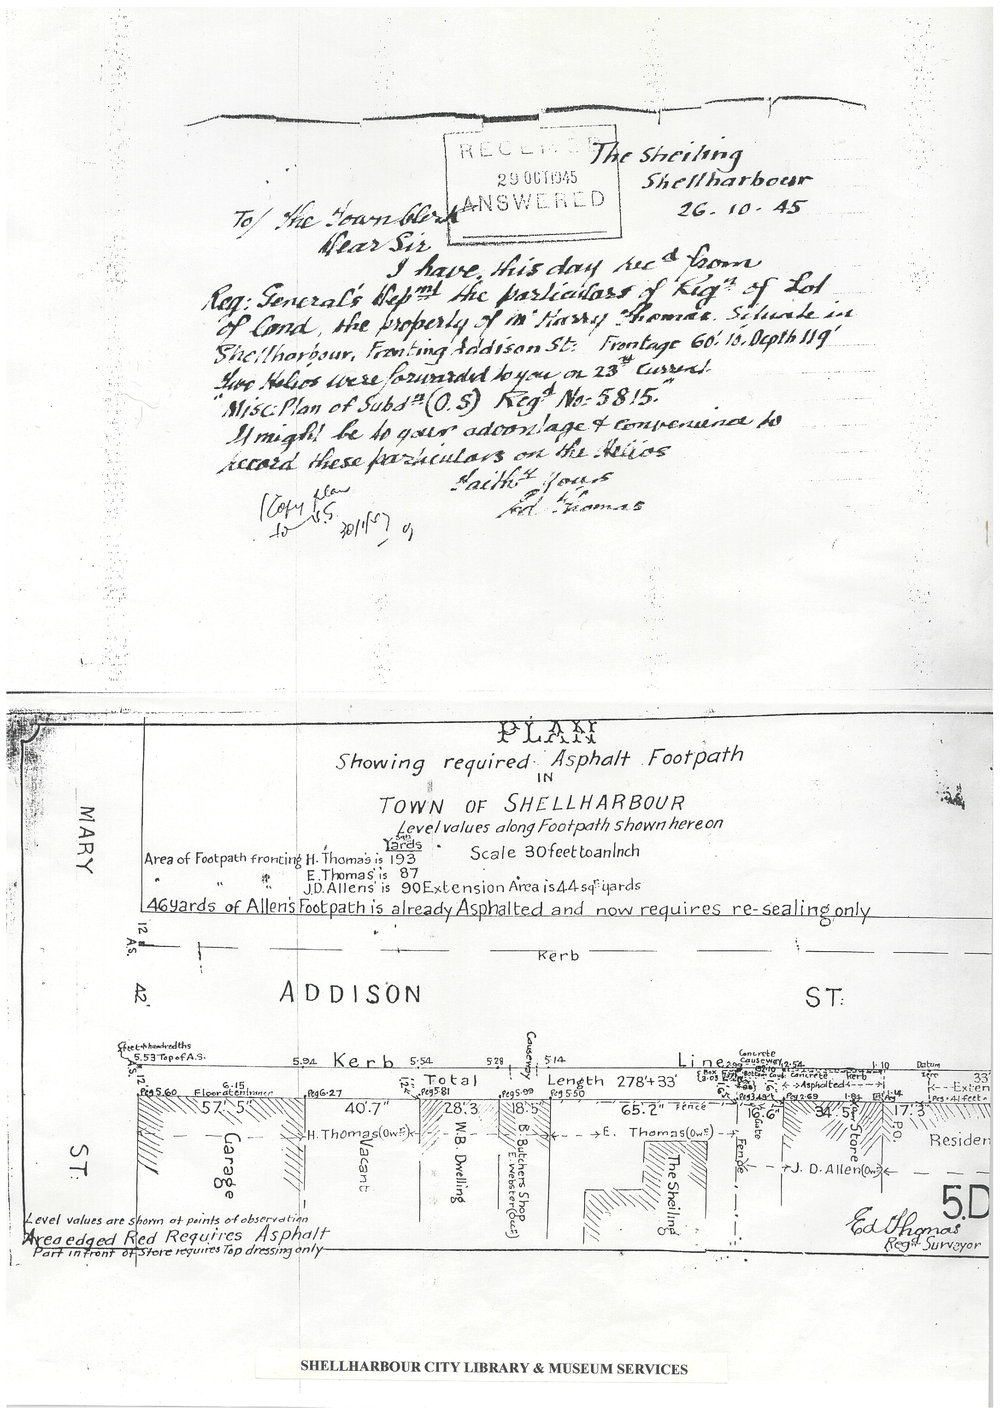 RECEIVED
29 OCT 1945
ANSWERED
The Sheiling
Shellharbour
26-10-45
To/ The Town Clerk
Dear Sir
I have this day recd from
Reg: General's Depmt the particulars of Regn of Lot
of Land, the property of Mr Harry Thomas. Situate in
Shellharbour, Fronting Addison St: Frontage 60'.10. Depth 119'
Two Helios were forwarded to you on 23rd Current
"Misc: Plan of Subdn (O.S) Regd No- 5815."
It might be to your advantage & convenience to
record these particulars on the Helios
Faithy Yours
Ed Thomas
Copy plan
to S.S.
PLAN
Showing required Asphalt Footpath
IN
TOWN OF SHELLHARBOUR
Level values along Footpath shown hereon
Scale 30 feet to an Inch
Sqr Yards
Area of Footpath fronting H. Thomas is 193
" " " E. Thomas' is 87
J.D. Allens' is 90 Extension Area is 44 sqr yards
46 yards of Allen's Footpath is already Asphalted and now requires re-sealing only
MARY
ST:
12
A.S.
42'
Kerb
ADDISON ST:
Feet & hundredths
5.53 Top of A.S.
A.S.
12'
5.94 Kerb 5.54 5.28 Causeway 5.14 Line
Concrete
Causeway
2.54 1.10 Datum
12' Total Length 278'+33'
Concrete Kerb
Asphalted
33'
Exten
Peg 5.60 6.15 Floor at en Inner Peg 6.27 Peg 5.81 Peg 5.99 Peg 5.50 Peg 2.69 1.84
57'.5" 40'.7" 28'.3 18'.5" 65'.2" Fence 16'.6" 34'.5" 17'.3
H. Thomas (Owr) E. Thomas (Owr) J. D. Allen (Owr)
Garage
Vacant
W.B. Dwelling
B. Butchers Shop
E. Webster (Occr)
The Sheiling
Fence
Gate
Store
P.O.
Residen
5.D
Level values are shown at points of observation
Area edged Red Requires Asphalt
Part in front of Store requires Top dressing only
Ed Thomas
Regd Surveyor
SHELLHARBOUR CITY LIBRARY & MUSEUM SERVICES